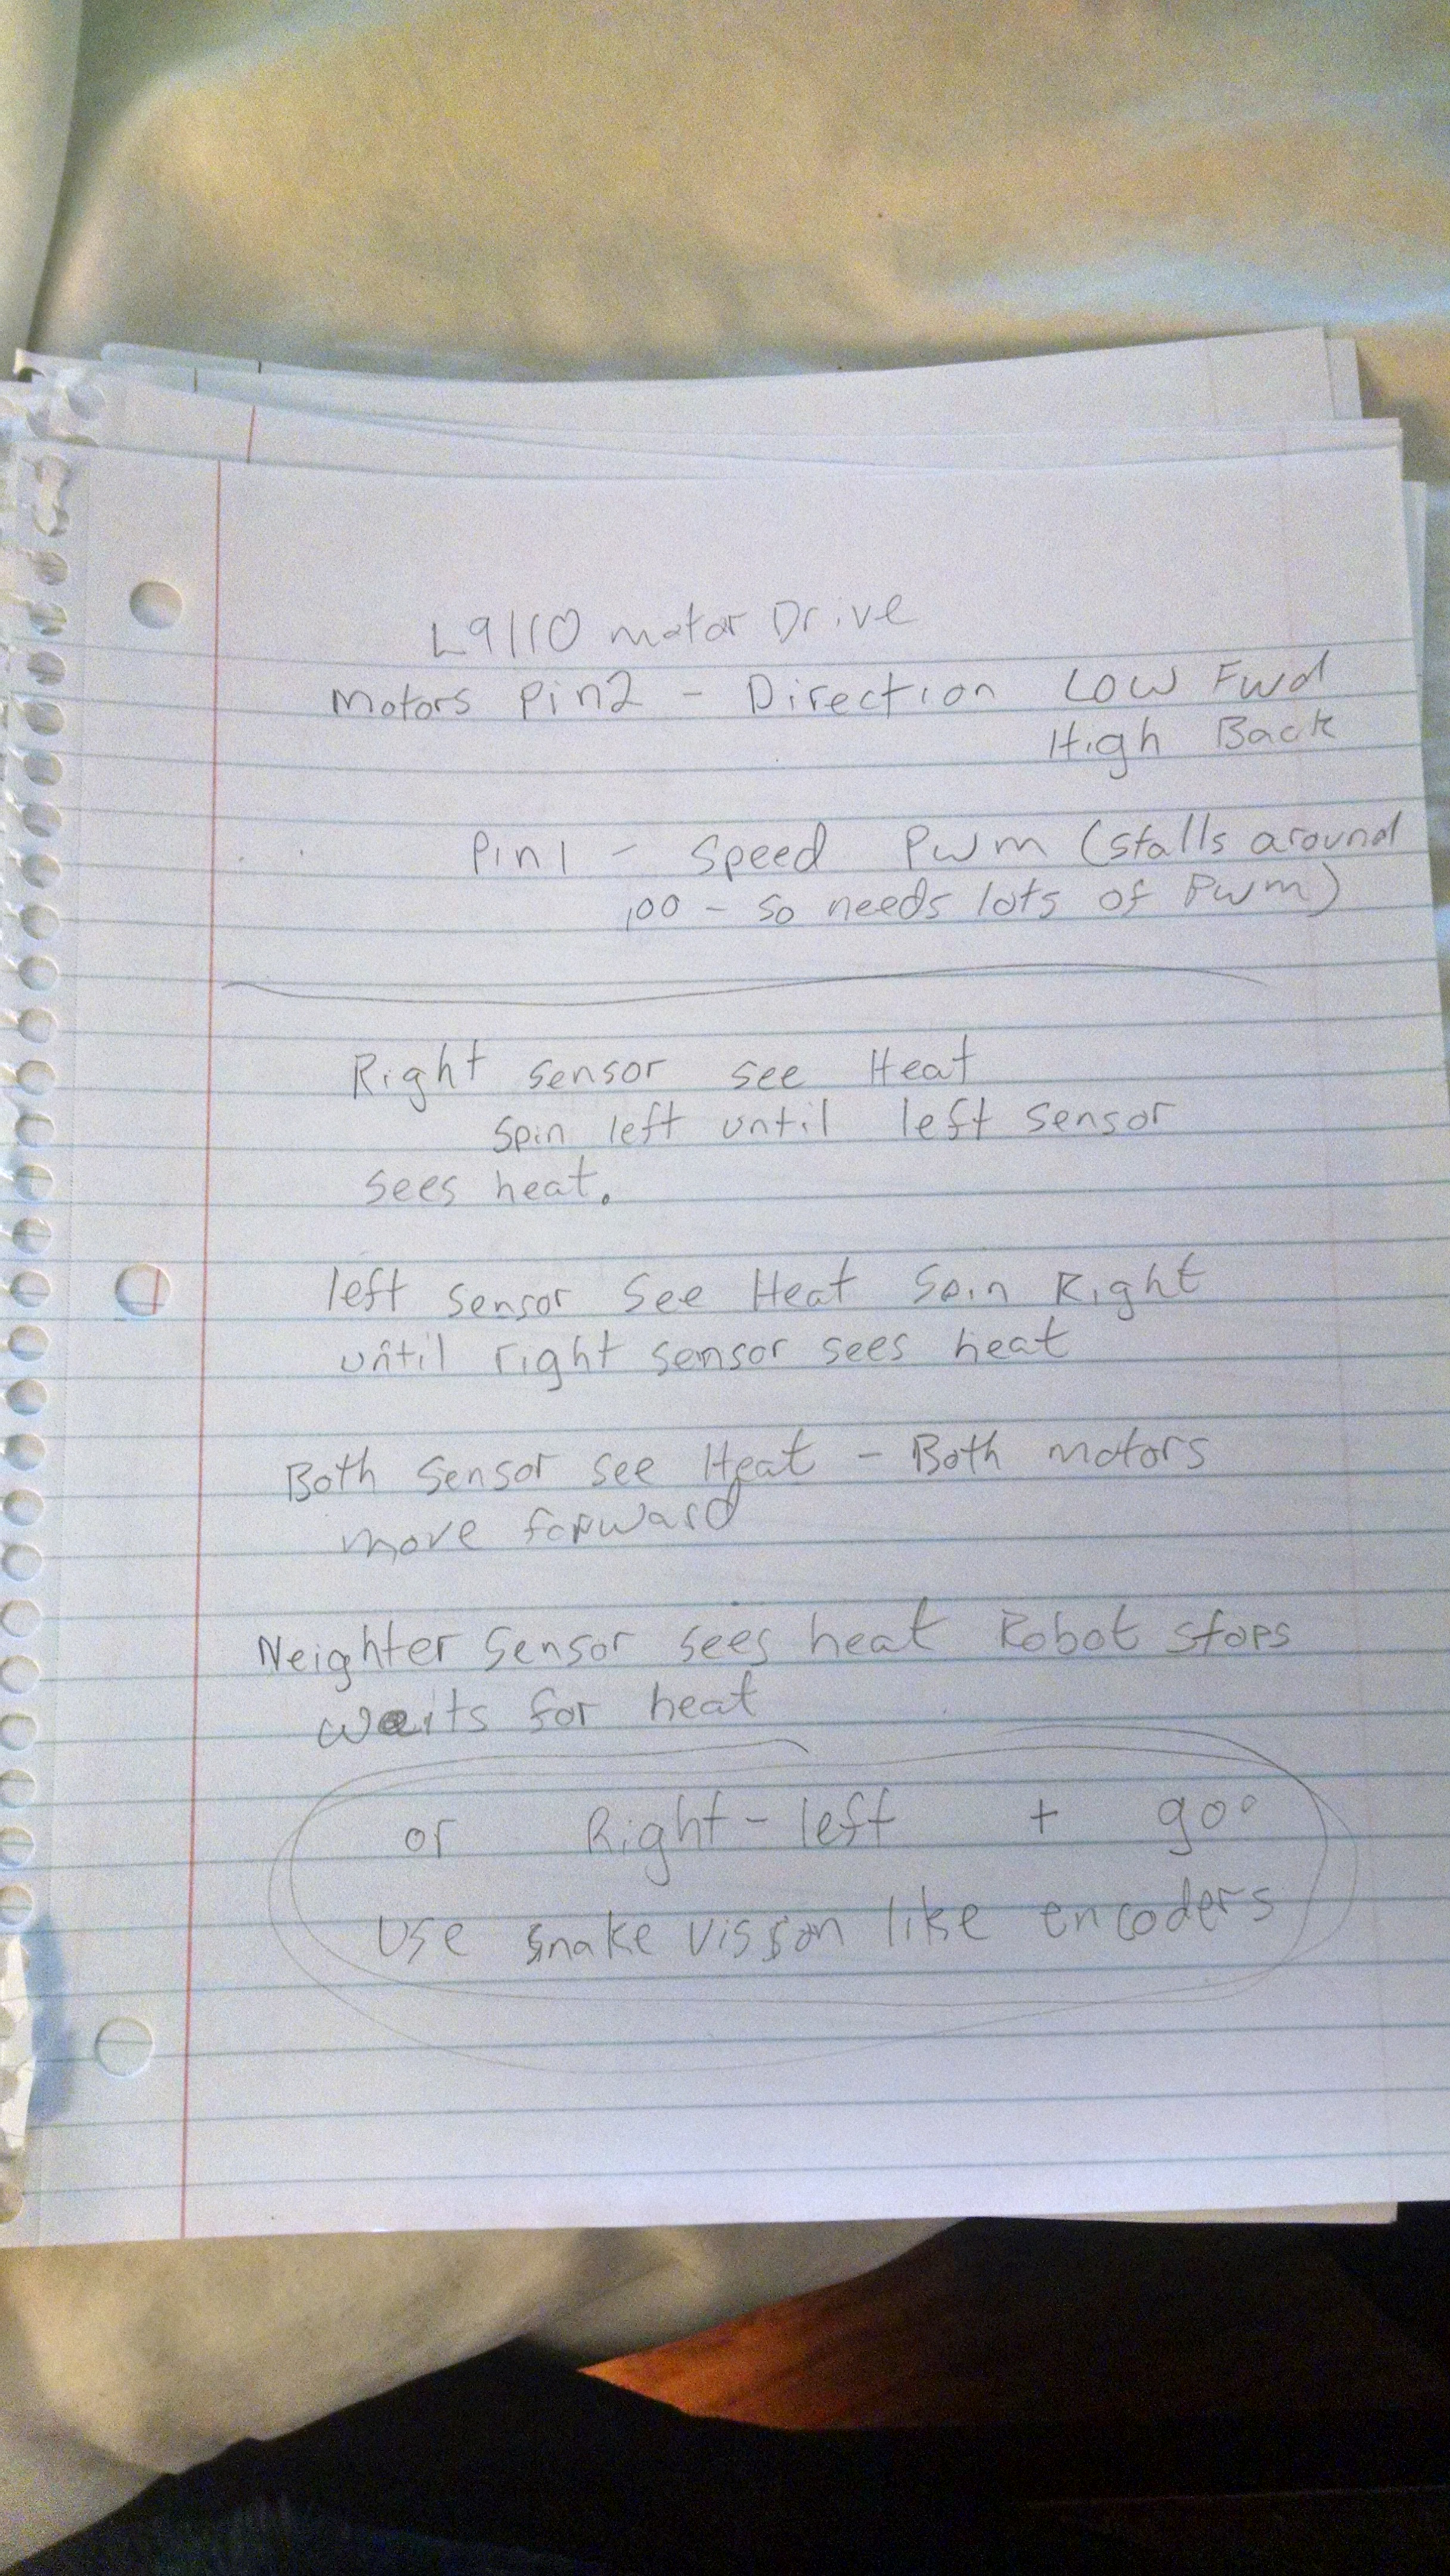 L9110 motor Drive
Motors Pin2 - Direction Low Fwd
High Back
Pin1 - Speed Pwm (stalls around
100 - so needs lots of Pwm)
Right sensor see Heat
Spin left until left sensor
sees heat.
left sensor see Heat Spin Right
until right sensor sees heat
Both sensor see Heat - Both motors
move forward
Neighter sensor sees heat Robot stops
waits for heat
or Right-left + 90°
Use snake vission like encoders